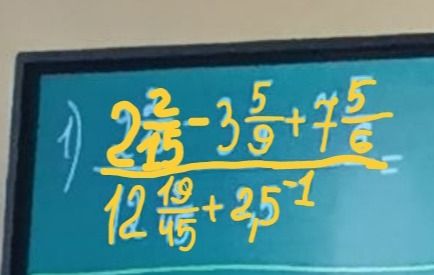 1) (2 2/15 - 3 5/9 + 7 5/6) / (12 19/45 + 2,5^-1) =